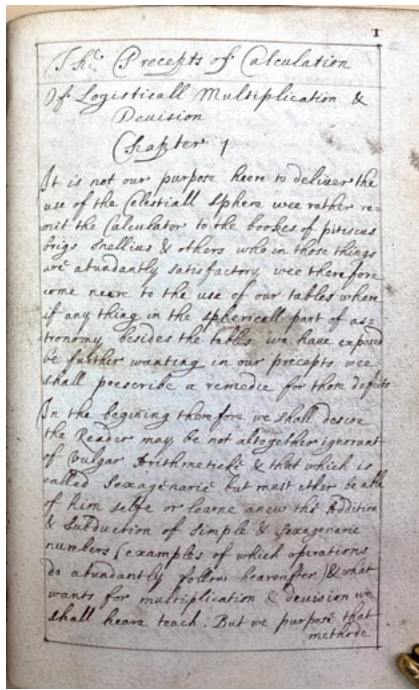 1
The Precepts of Calculation
Of Logisticall Multiplication &
Devision
Chapter 1
It is not our purpose heere to deliver the
use of the Celestiall Sphere wee rather re=
mit the Calculator to the bookes of pitiscus
brigs snellius & others who in those things
are abundantly satisfactory, wee therefore
come neere to the use of our tables where
if any thing in the sphericall part of as=
=tronomy besides the tables we have exposed
be further wanting in our precepts wee
shall prescribe a remedie for those defects
In the begining therefore we shall desire
the Reader may be not altogether ignorant
of Vulgar Arithmeticke & that which is
called Sexagenarie but must ether be able
of him selfe or learne anew the Addition
& Subduction of Simple & Sexagenarie
numbers (examples of which operations
do abundantly follow heareafter) & what
wants for multiplication & devision we
shall heare teach. But we purpose that
methode